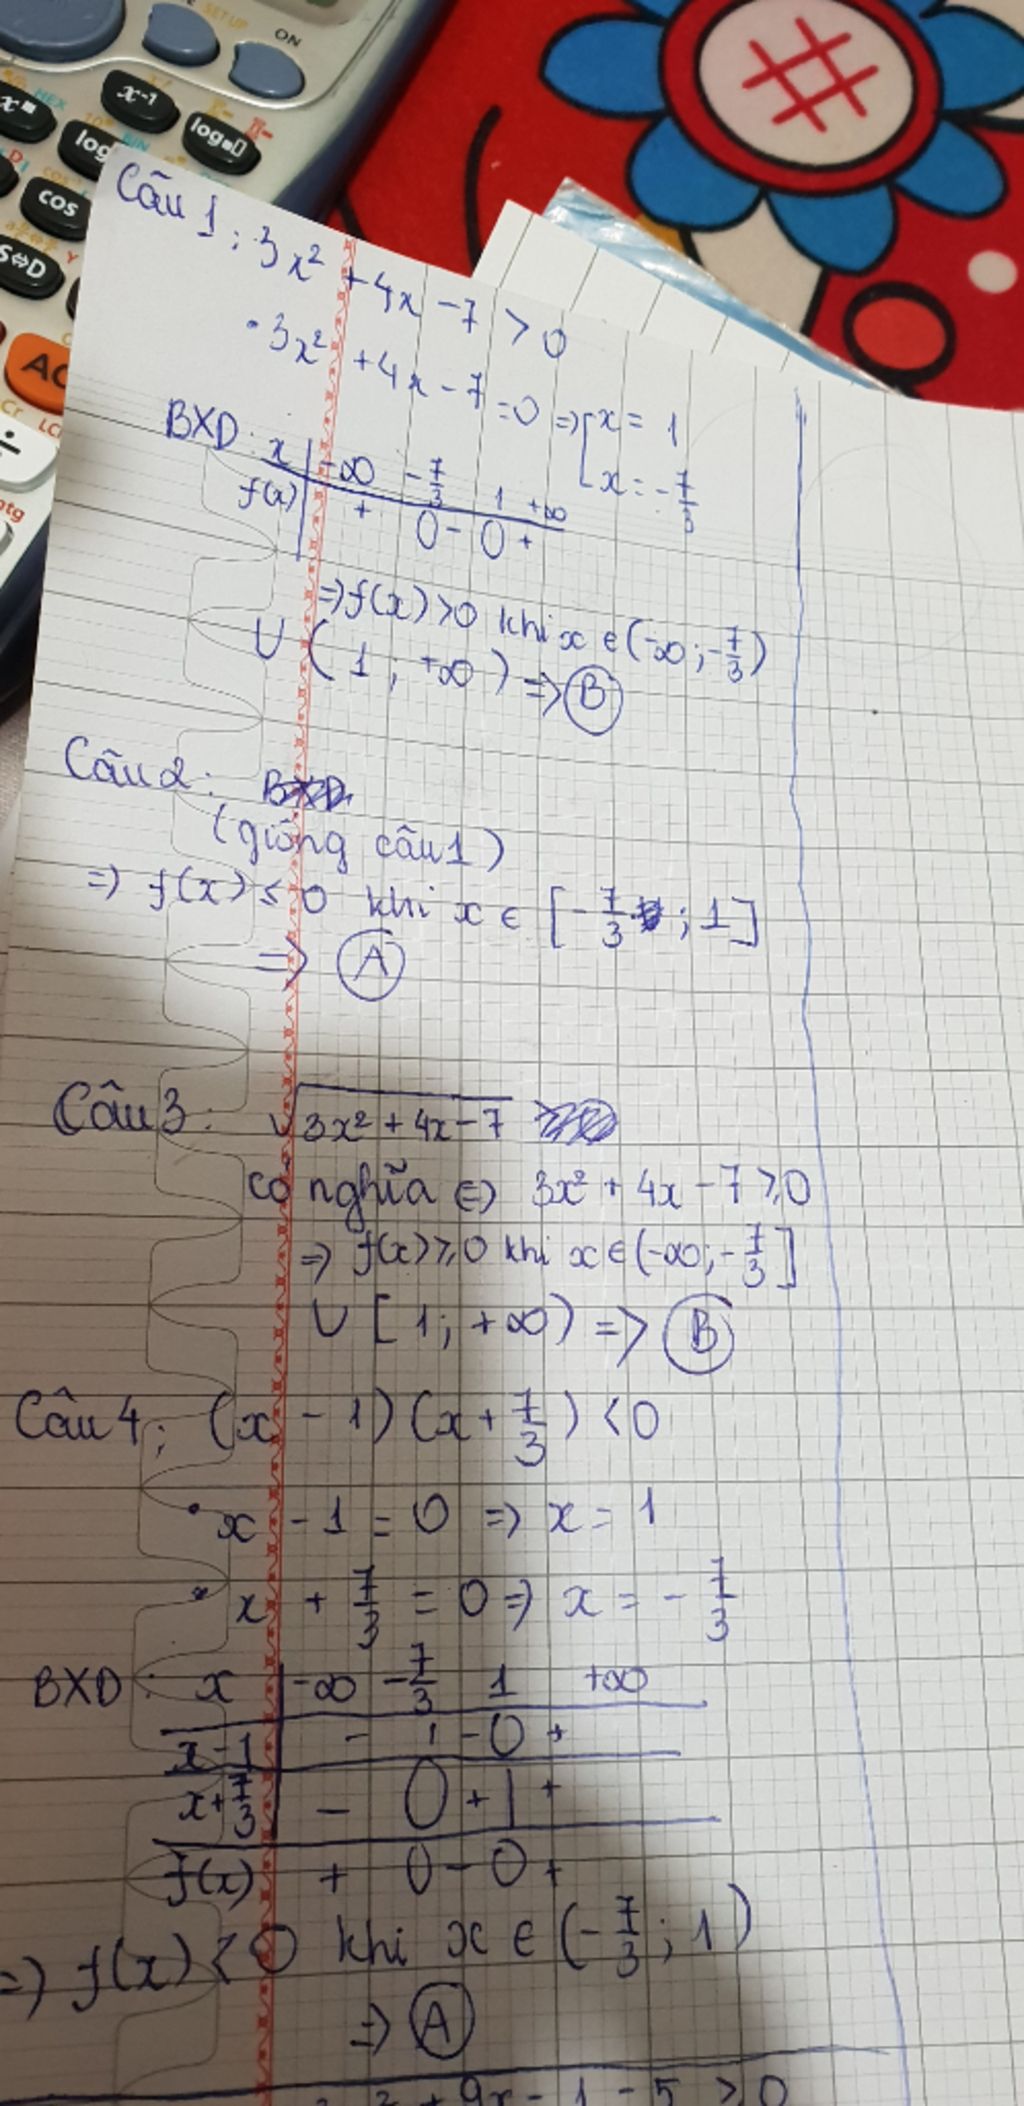 SETUP
ON
x⁻¹
HEX
BIN
log
log
cos
S⇔D
Y
AC
Cr
÷
Câu 1: 3x² + 4x - 7 > 0
• 3x² + 4x - 7 = 0 => [x = 1
x = -7/3
BXD: x | -∞ -7/3 1 +∞
f(x) | + 0 - 0 +
=> f(x) > 0 khi x ∈ (-∞; -7/3)
∪ (1; +∞) => B
Câu 2:
(giống câu 1)
=> f(x) ≤ 0 khi x ∈ [-7/3; 1]
=> A
Câu 3: √3x² + 4x - 7
có nghĩa <=> 3x² + 4x - 7 ≥ 0
=> f(x) ≥ 0 khi x ∈ (-∞; -7/3]
∪ [1; +∞) => B
Câu 4: (x - 1)(x + 7/3) < 0
• x - 1 = 0 => x = 1
• x + 7/3 = 0 => x = -7/3
BXD: x | -∞ -7/3 1 +∞
x-1 | - | - 0 +
x+7/3 | - 0 + | +
f(x) + 0 - 0 +
=> f(x) < 0 khi x ∈ (-7/3; 1)
=> A
+ 9x - 1 - 5 > 0